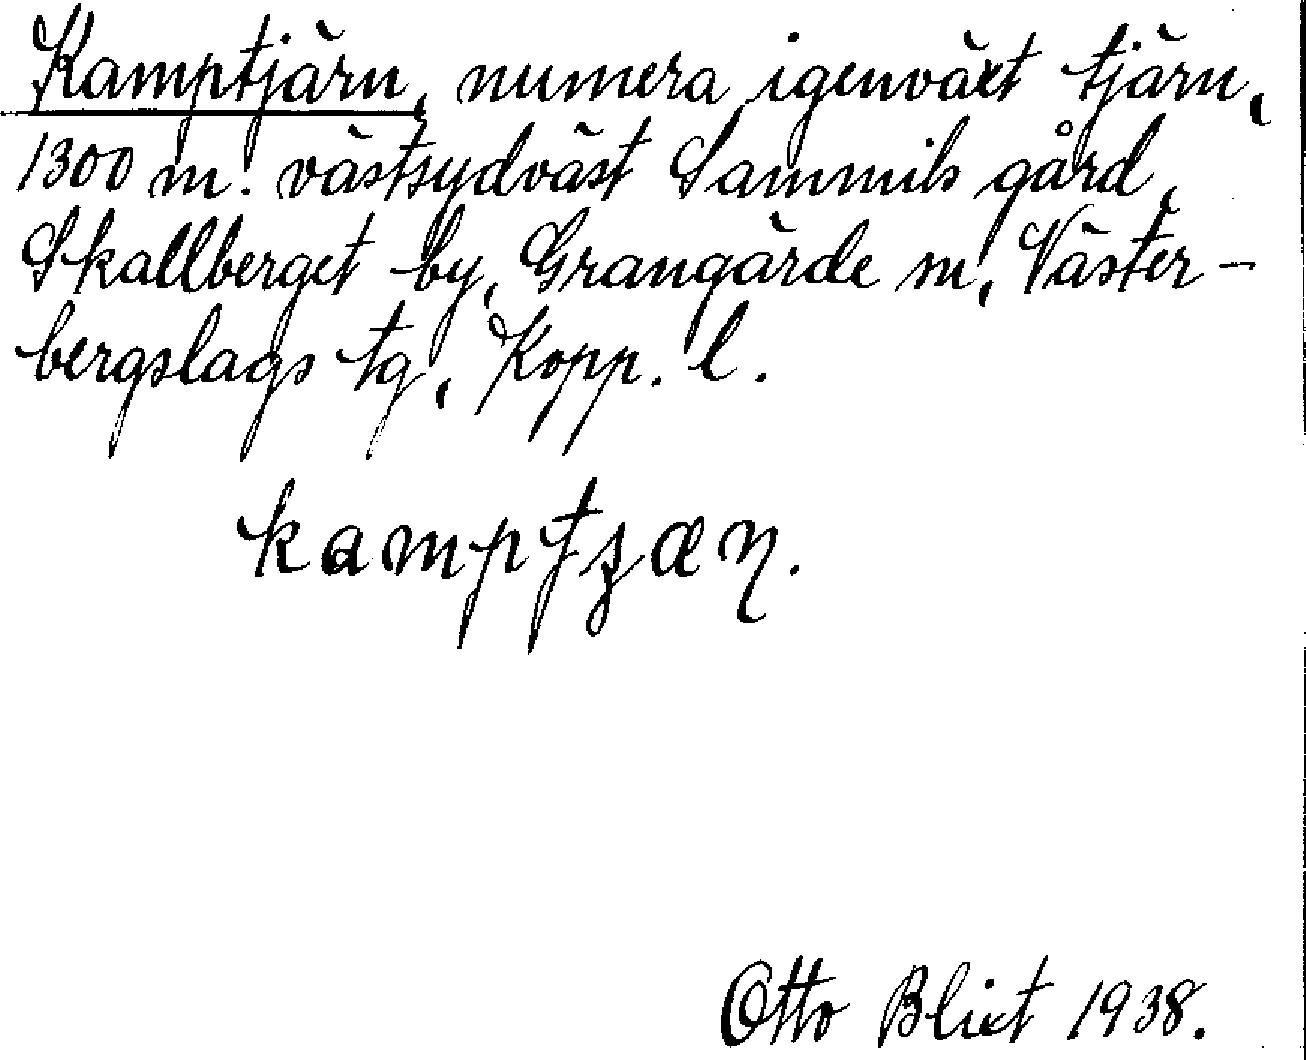 Kamptjärn, numera igenväxt tjärn,
1300 m. västsydväst Sammils gård,
Skallberget by, Grangärde sn, Väster-
bergslags tg, Kopp. l.
kamptʒæɳ.
Otto Blixt 1938.